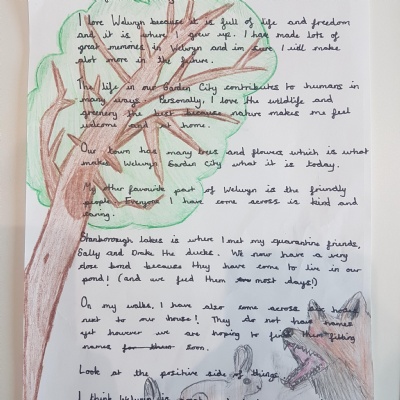 I love Welwyn because it is full of life and freedom
and it is where I grew up. I have made lots of
great memories in Welwyn and im sure I will make
alot more in the future.
The life in our Garden City contributes to humans in
many ways. Personally, I love the wildlife and
greenery the best because nature makes me feel
welcome and at home.
Our town has many trees and flowers which is what
makes Welwyn Garden City what it is today.
My other favourite part of Welwyn is the friendly
people. Everyone I have come across is kind and
caring.
Stanborough lakes is where I met my quarantine friends,
Sally and Drake the ducks. We now have a very
close bond because they have come to live in our
pond! (and we feed them most days!)
On my walks, I have also come across
next to our house! They do not have names
yet however we are hoping to fitting
names for them soon.
Look at the positive side of things
I think Welwyn is